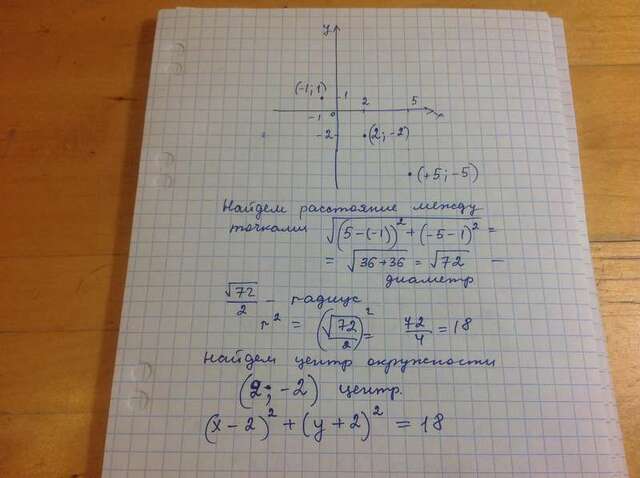 y
(-1; 1)
1
2
5
-1
0
x
-2
(2; -2)
(+5; -5)
Найдем расстояние между
точками √((5-(-1))² + (-5-1)²) =
= √(36+36) = √72 —
диаметр
√72/2 — радиус
r² = (√72/2)² = 72/4 = 18
Найдем центр окружности
(2; -2) центр.
(x-2)² + (y+2)² = 18